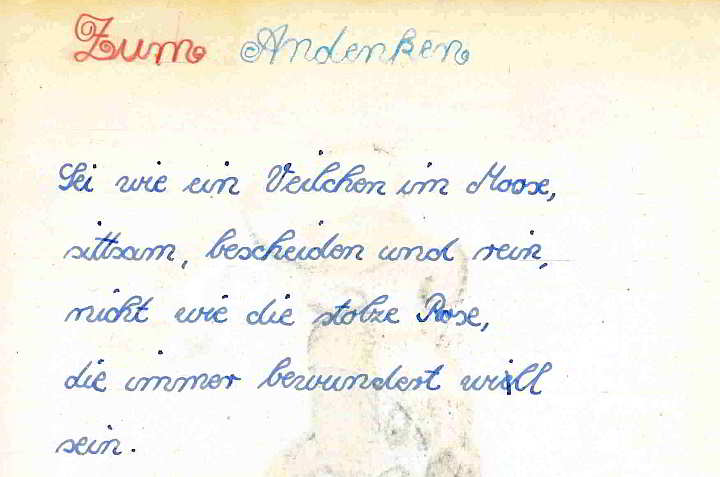 Zum Andenken
Sei wie ein Veilchen im Moose,
sittsam, bescheiden und rein,
nicht wie die stolze Rose,
die immer bewundert will
sein.